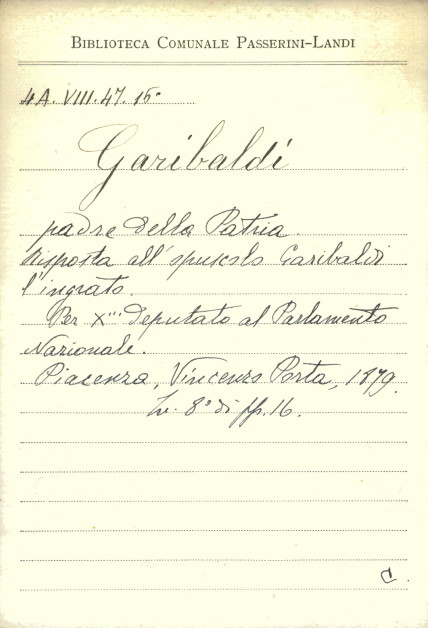 BIBLIOTECA COMUNALE PASSERINI-LANDI
4A. VIII. 47. 15°
Garibaldi
padre della Patria.
Risposta all'opuscolo Garibaldi
l'ingrato.
Per X''' deputato al Parlamento
Nazionale.
Piacenza, Vincenzo Porta, 1879.
In 8° di pp. 16.
C.